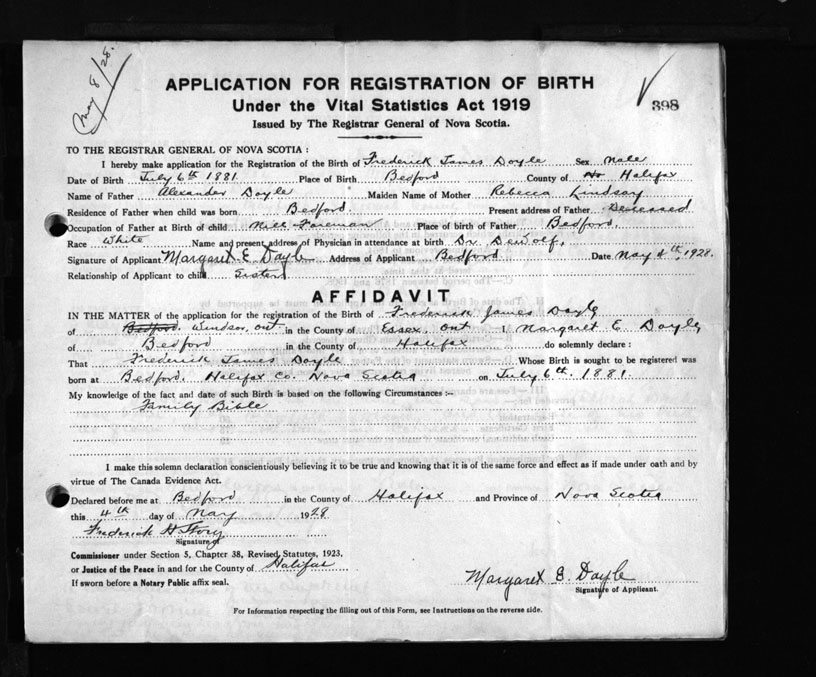 May 8/28.
APPLICATION FOR REGISTRATION OF BIRTH
Under the Vital Statistics Act 1919
398
Issued by The Registrar General of Nova Scotia.
TO THE REGISTRAR GENERAL OF NOVA SCOTIA:
I hereby make application for the Registration of the Birth of Frederick James Doyle Sex Male
Date of Birth July 6th 1881 Place of Birth Bedford County of Halifax
Name of Father Alexander Doyle Maiden Name of Mother Rebecca Lindsay
Residence of Father when child was born Bedford Present address of Father Deceased
Occupation of Father at Birth of child Mill Foreman Place of birth of Father Bedford.
Race White Name and present address of Physician in attendance at birth Dr. DeWolf.
Signature of Applicant Margaret E. Doyle Address of Applicant Bedford Date May 4th, 1928.
Relationship of Applicant to child Sister
AFFIDAVIT
IN THE MATTER of the application for the registration of the Birth of Frederick James Doyle
of Bedford. Windsor, Ont in the County of Essex, Ont I Margaret E. Doyle,
of Bedford in the County of Halifax do solemnly declare:
That Frederick James Doyle Whose Birth is sought to be registered was
born at Bedford, Halifax Co. Nova Scotia on July 6th. 1881.
My knowledge of the fact and date of such Birth is based on the following Circumstances:–
Family Bible
I make this solemn declaration conscientiously believing it to be true and knowing that it is of the same force and effect as if made under oath and by
virtue of The Canada Evidence Act.
Declared before me at Bedford in the County of Halifax and Province of Nova Scotia
this 4th day of May 1928
Frederick
Signature of
Commissioner under Section 5, Chapter 38, Revised Statutes, 1923.
or Justice of the Peace in and for the County of Halifax
If sworn before a Notary Public affix seal.
Margaret E. Doyle
Signature of Applicant.
For Information respecting the filling out of this Form, see Instructions on the reverse side.